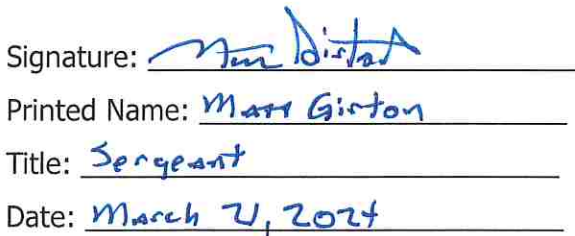 Signature:
Printed Name: Matt Girton
Title: Sergeant
Date: March 21, 2024